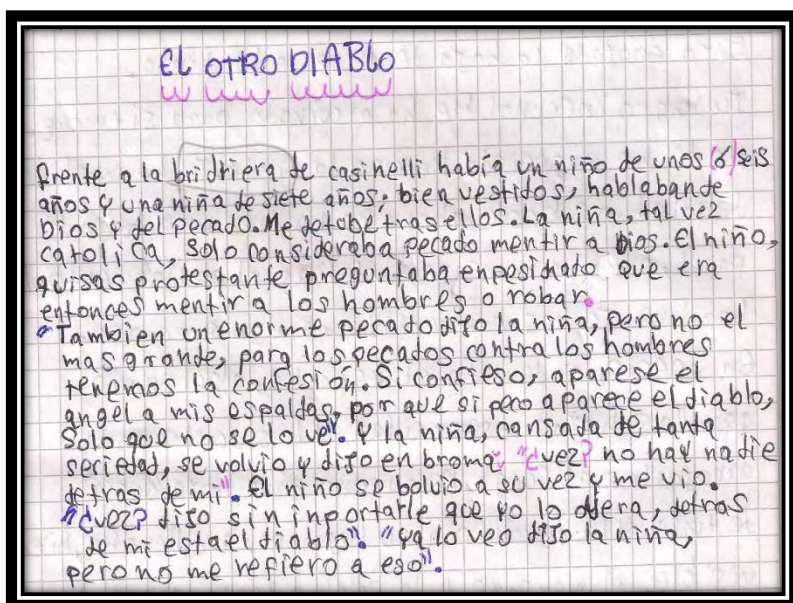 EL OTRO DIABLO
frente a la bridriera de casinelli había un niño de unos (6) seis
años y una niña de siete años, bien vestidos, hablaban de
Dios y del pecado. Me detobe tras ellos. La niña, tal vez
catolica, solo consideraba pecado mentir a Dios. El niño,
quisas protestante preguntaba enpesinado que era
entonces mentir a los hombres o robar.
"Tambien un enorme pecado dijo la niña, pero no el
mas grande, para los pecados contra los hombres
tenemos la confesión. Si confieso, aparese el
angel a mis espaldas, por que si peco aparece el diablo,
Solo que no se lo ve". y la niña, cansada de tanta
seriedad, se volvio y dijo en broma: "¿vez? no hay nadie
detras de mi". El niño se bolvio a su vez y me vio.
"¿vez? dijo sin inportarle que yo lo oyera, detras
de mi esta el diablo". "ya lo veo dijo la niña,
pero no me refiero a eso".